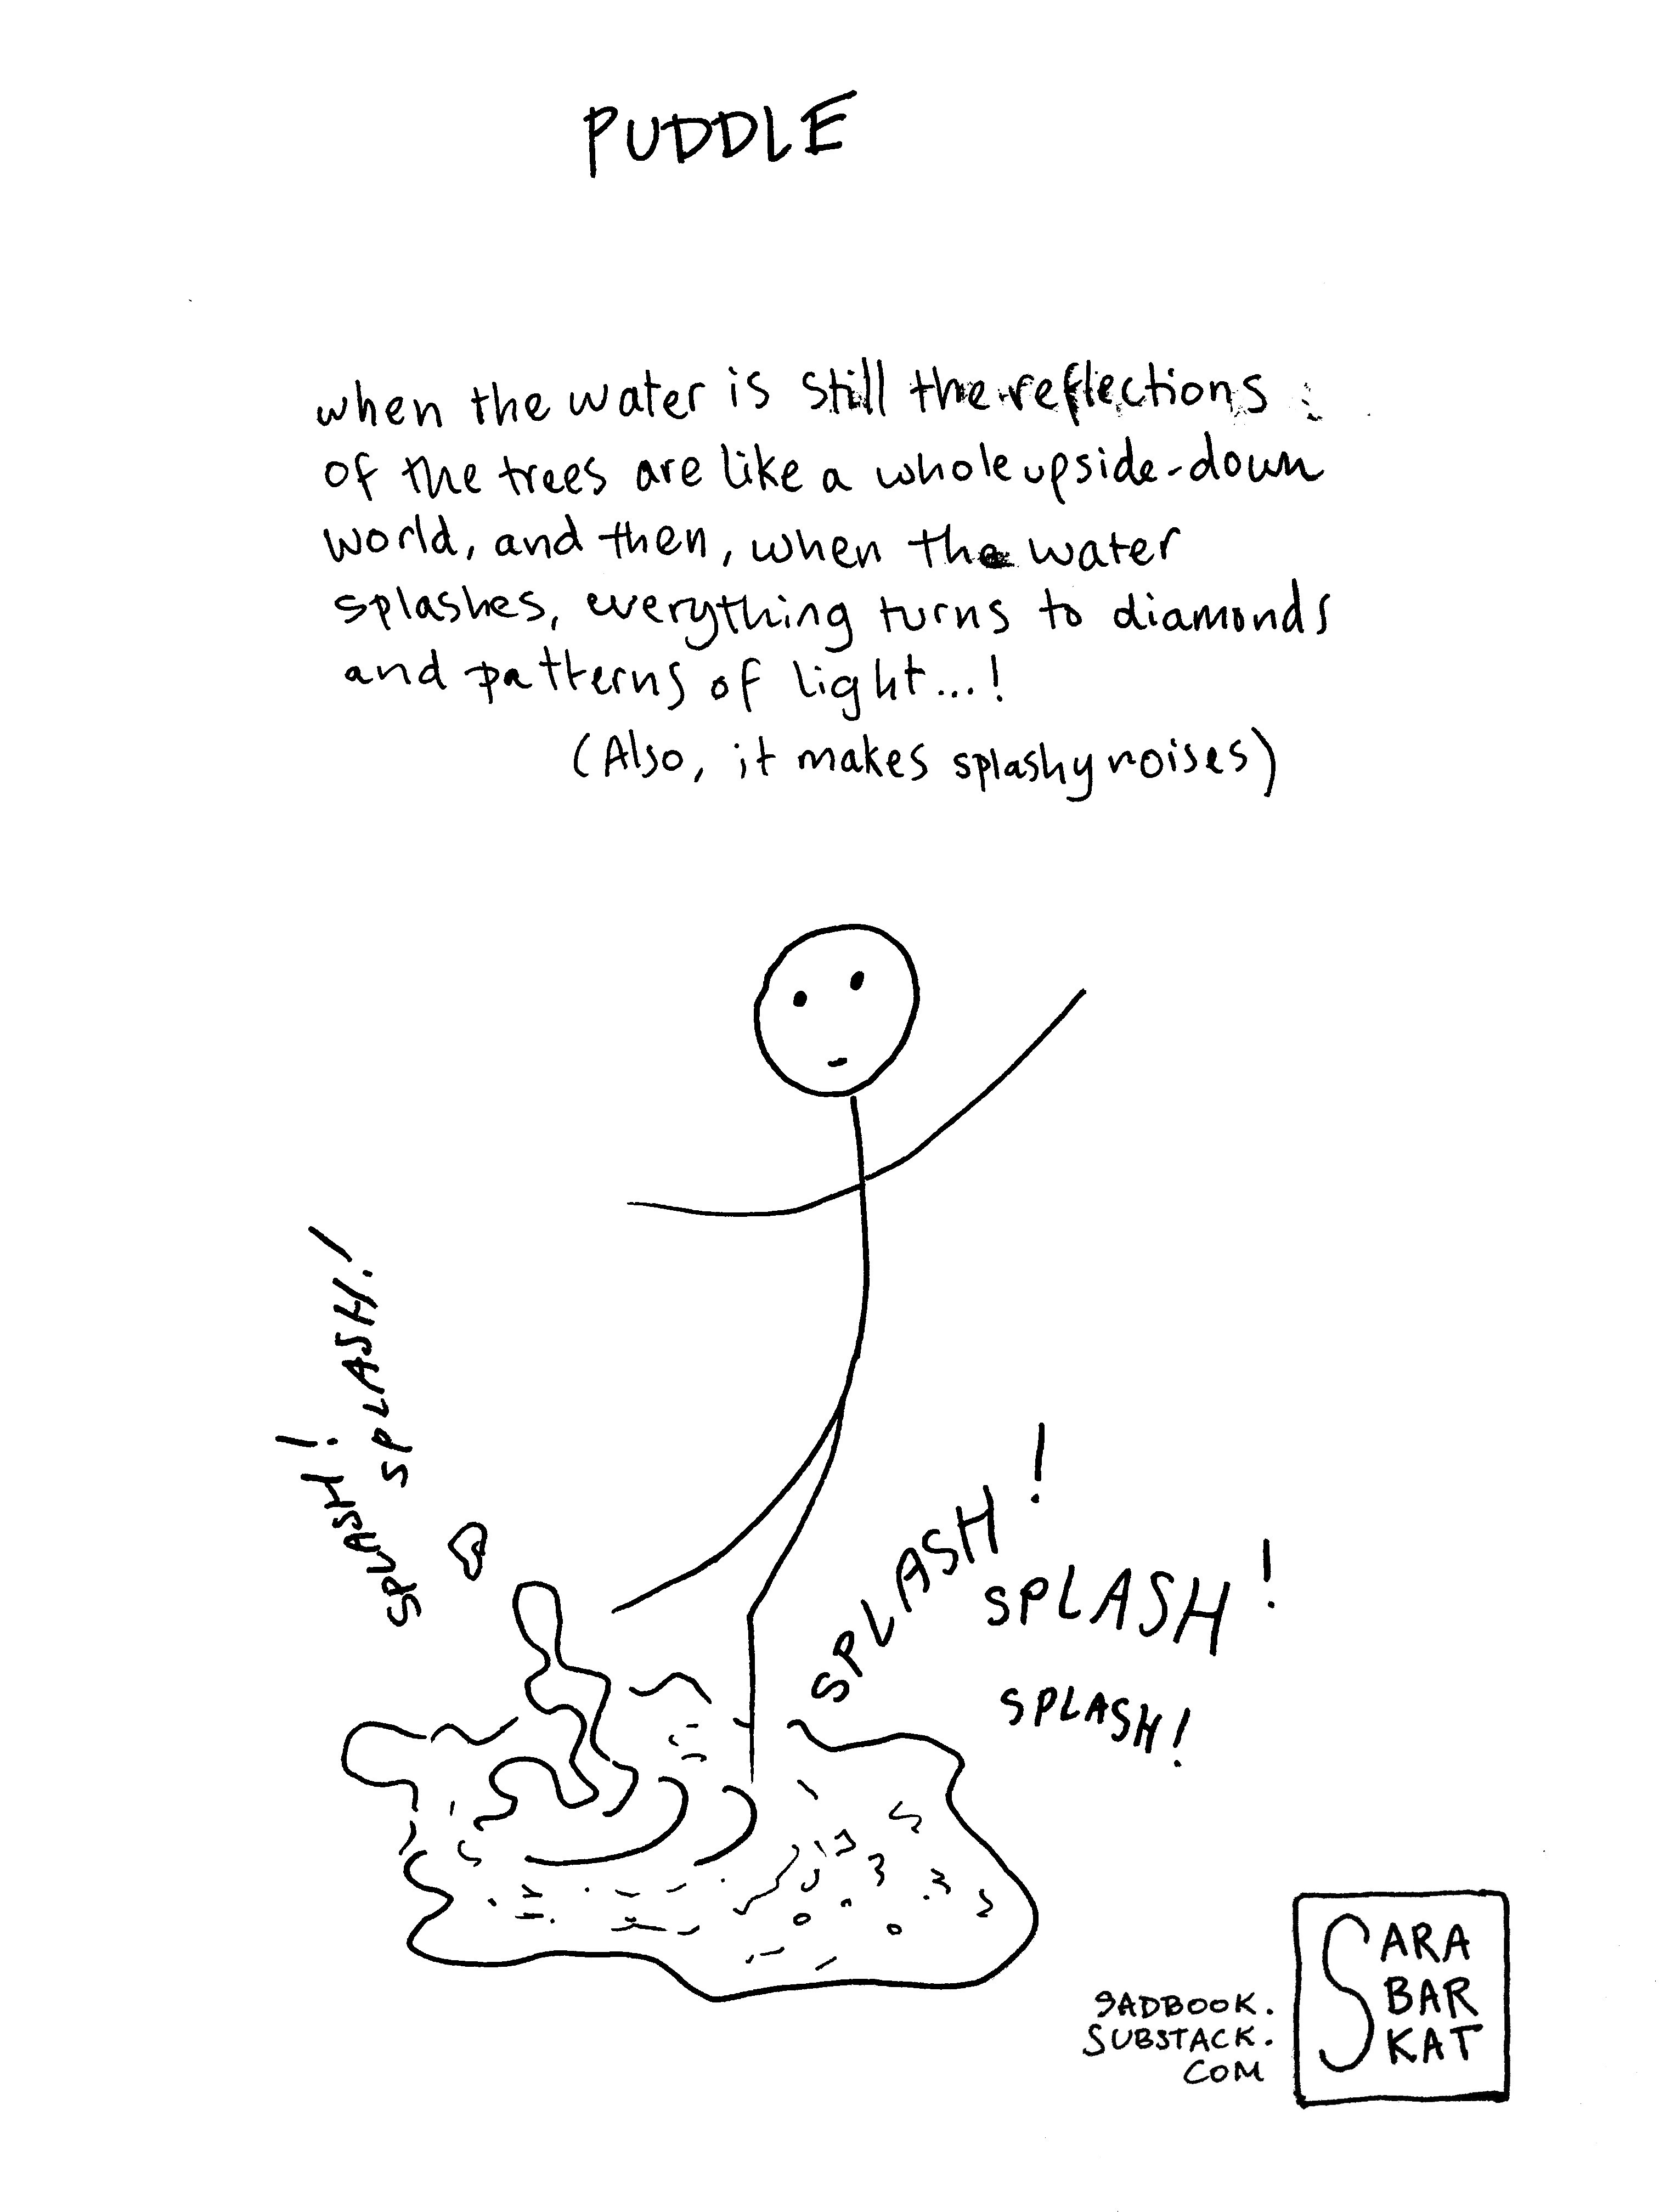 PUDDLE
when the water is still the reflections
of the trees are like a whole upside-down
world, and then, when the water
splashes, everything turns to diamonds
and patterns of light...!
(Also, it makes splashy noises)
SPLASH!
SPLASH!
SPLASH!
SPLASH!
SPLASH!
SADBOOK.
SUBSTACK.
COM
SARA
BAR
KAT